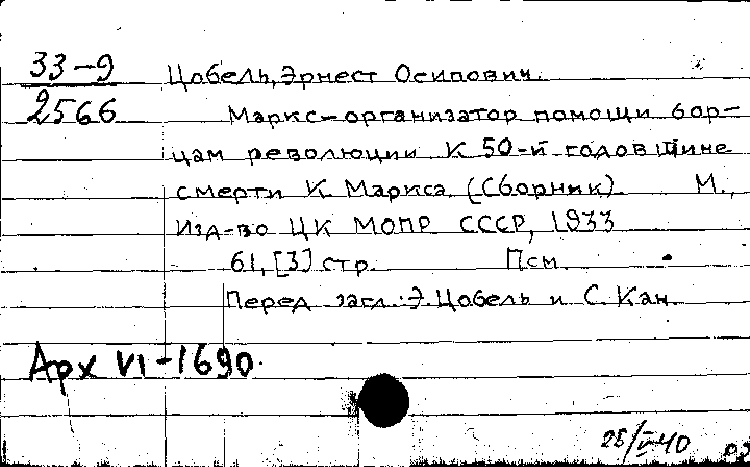 33-9
2566
Цобель, Эрнест Осипович.
Маркс-организатор помощи бор-
цам революции К 50-й годовщине
смерти К. Маркса (Сборник). М.,
Изд-во ЦК МОПР СССР, 1933
61, [3] стр. Псм.
Перед загл.: Э. Цобель и С. Кан.
Арх VI-1690.